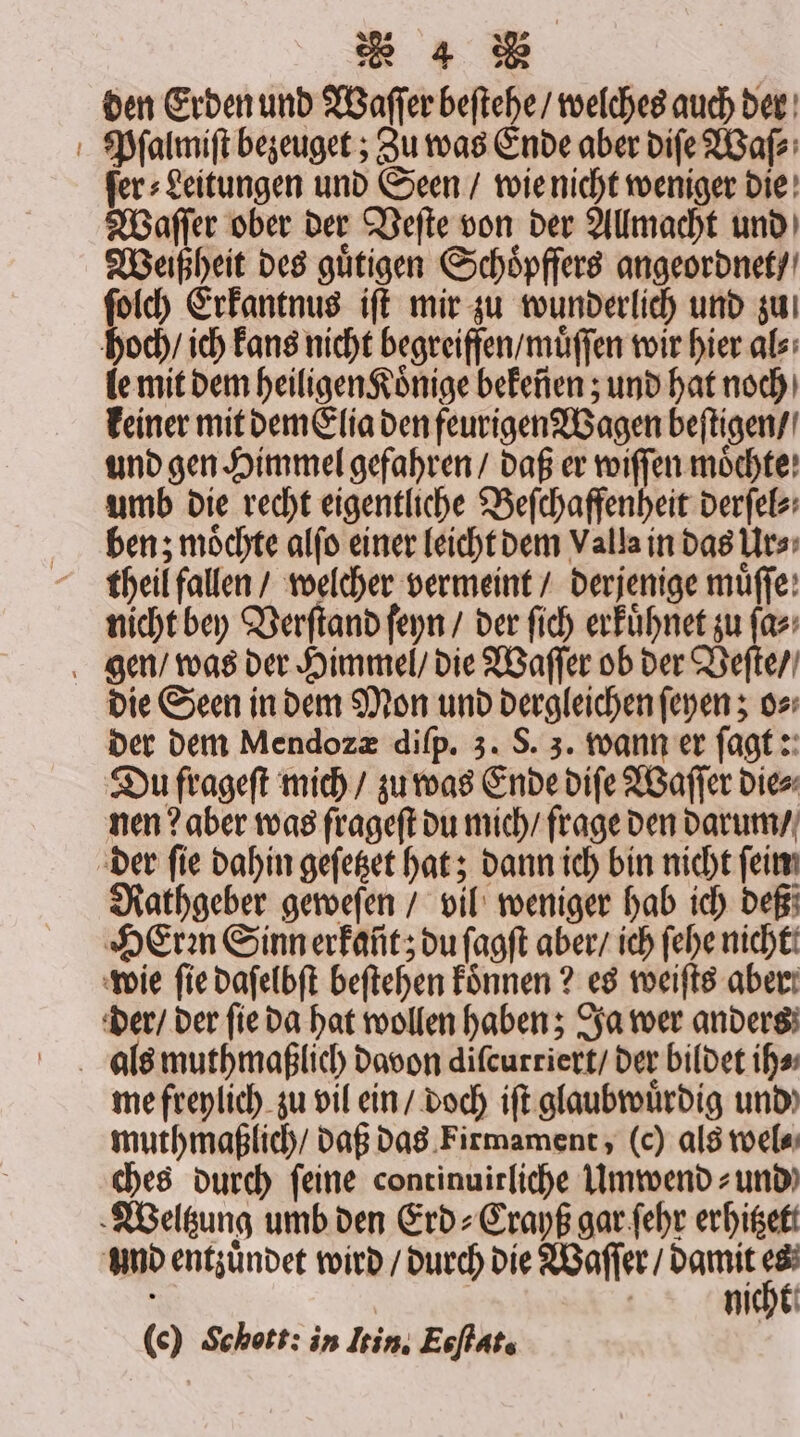 ❋ 4 ❋
den Erden und Waſſer beſtehe / welches auch der
Pſalmiſt bezeuget; Zu was Ende aber diſe Waſ⸗
ſer⸗Leitungen und Seen / wie nicht weniger die
Waſſer ober der Veſte von der Allmacht und
Weißheit des guͤtigen Schoͤpffers angeordnet/
ſolch Erkantnus iſt mir zu wunderlich und zu
hoch/ ich kans nicht begreiffen/muͤſſen wir hier al⸗
le mit dem heiligen Koͤnige bekeñen; und hat noch
keiner mit dem Elia den feurigen Wagen beſtigen/
und gen Himmel gefahren / daß er wiſſen moͤchte
umb die recht eigentliche Beſchaffenheit derſel⸗
ben; moͤchte alſo einer leicht dem Valla in das Ur⸗
theil fallen / welcher vermeint / derjenige muͤſſe
nicht bey Verſtand ſeyn / der ſich erkuͤhnet zu ſa⸗
gen/ was der Himmel/ die Waſſer ob der Veſte/
die Seen in dem Mon und dergleichen ſeyen; o⸗
der dem Mendozæ diſp. 3. S. 3. wann er ſagt:
Du frageſt mich / zu was Ende diſe Waſſer die⸗
nen? aber was frageſt du mich/ frage den darum/
der ſie dahin geſetzet hat; dann ich bin nicht ſein
Rathgeber geweſen / vil weniger hab ich deß
HErꝛn Sinn erkañt; du ſagſt aber/ ich ſehe nicht
wie ſie daſelbſt beſtehen koͤnnen? es weiſts aber
der/ der ſie da hat wollen haben; Ja wer anders
als muthmaßlich davon diſcurriert/ der bildet ih⸗
me freylich zu vil ein / doch iſt glaubwuͤrdig und
muthmaßlich/ daß das Firmament, (c) als wel⸗
ches durch ſeine continuirliche Umwend⸗ und
Weltzung umb den Erd⸗Crayß gar ſehr erhitzet
und entzuͤndet wird / durch die Waſſer / damit es
nicht
(c) Schott: in Itin. Ecſtat.